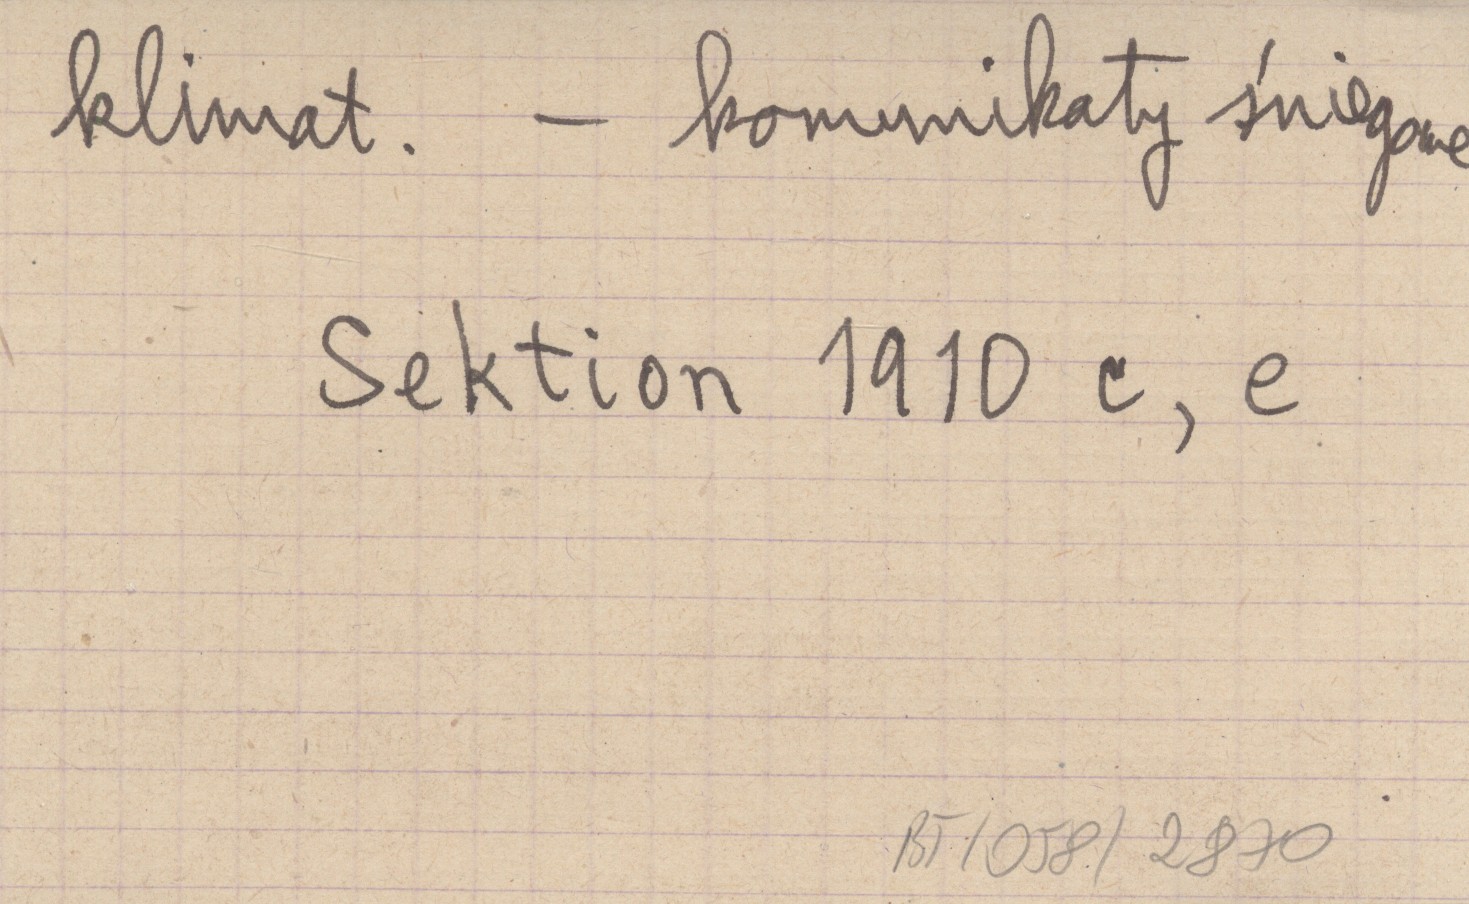 klimat. – komunikaty śniegowe
Sektion 1910 c, e
BT/058/2870